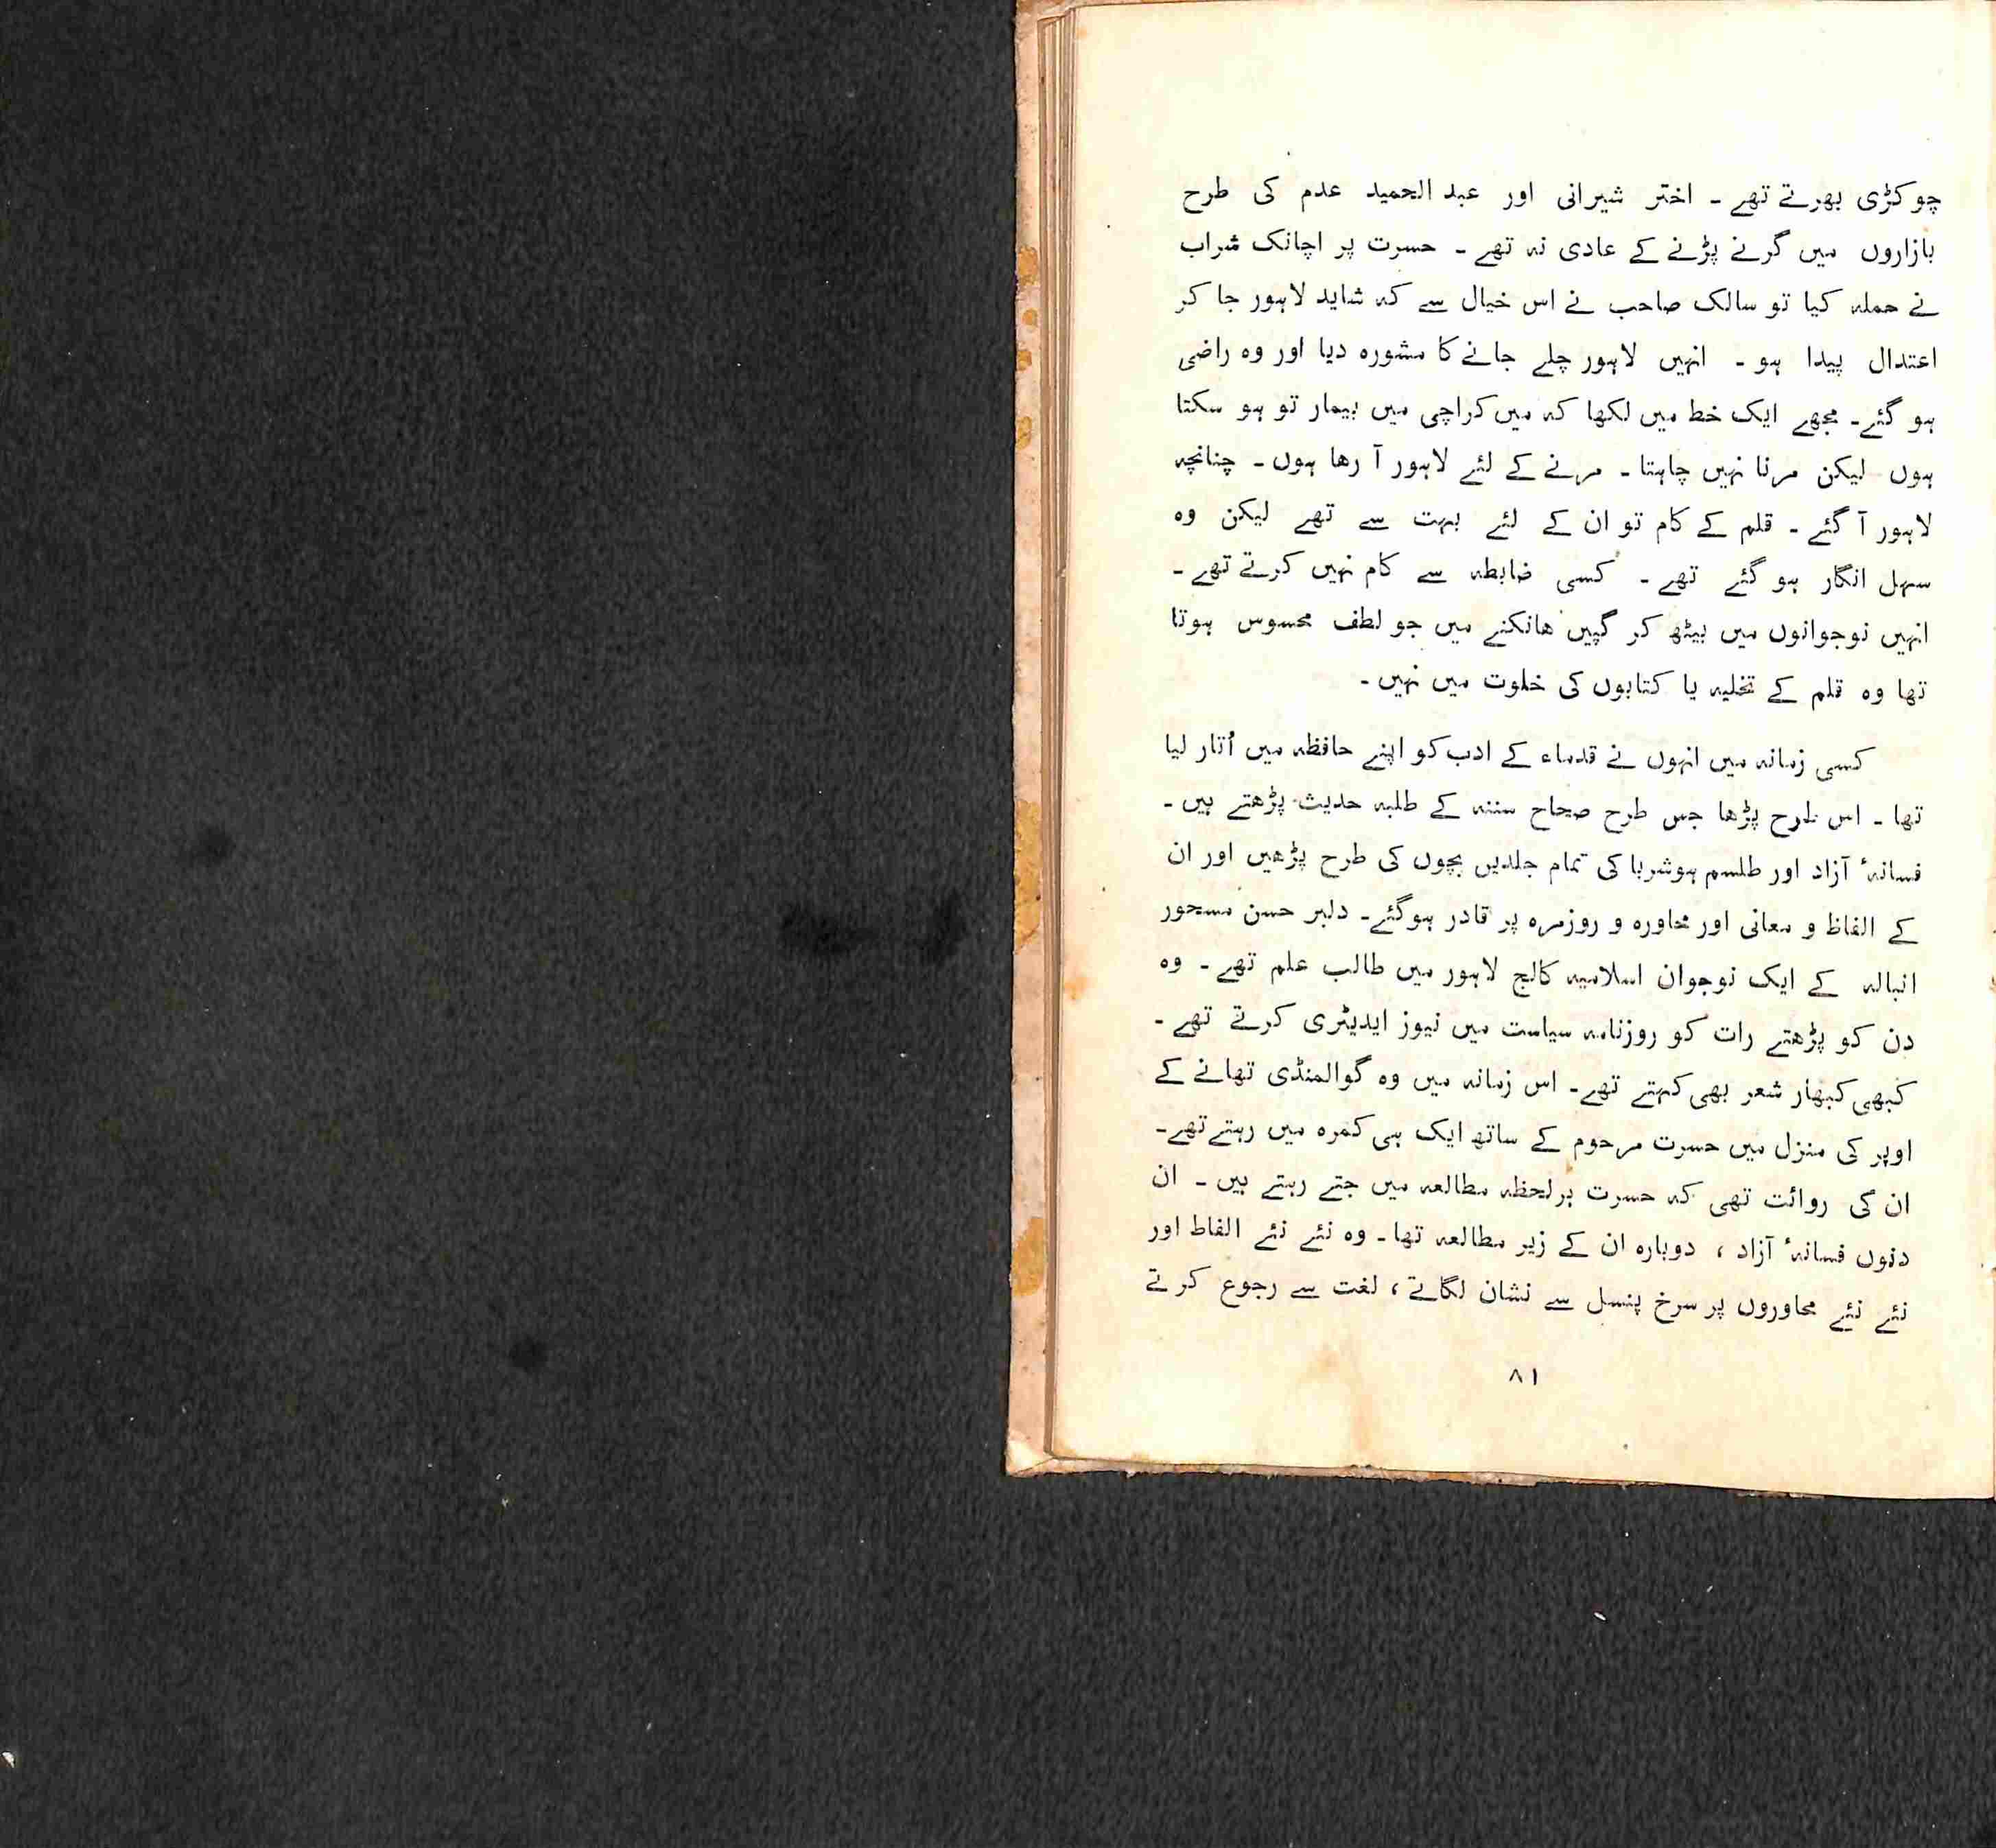 چوکڑی بھرتے تھے ۔ اختر شیرانی اور عبدالحمید عدم کی طرح
بازاروں میں گرنے پڑنے کے عادی نہ تھے ۔ حسرت پر اچانک شراب
نے حملہ کیا تو سالک صاحب نے اس خیال سے کہ شاید لاہور جا کر
اعتدال پیدا ہو ۔ انہیں لاہور چلے جانے کا مشورہ دیا اور وہ راضی
ہو گئے۔ مجھے ایک خط میں لکھا کہ میں کراچی میں بیمار تو ہو سکتا
ہوں لیکن مرنا نہیں چاہتا ۔ مرنے کے لئے لاہور آ رھا ہوں ۔ چنانچہ
لاہور آ گئے ۔ قلم کے کام تو ان کے لئے بہت سے تھے لیکن وہ
سہل انگار ہو گئے تھے ۔ کسی ضابطہ سے کام نہیں کرتے تھے ۔
انہیں نوجوانوں میں بیٹھ کر گپیں ھانکنے میں جو لطف محسوس ہوتا
تھا وہ قلم کے تخلیہ یا کتابوں کی خلوت میں نہیں ۔
کسی زمانہ میں انہوں نے قدماء کے ادب کو اپنے حافظہ میں اُتار لیا
تھا ۔ اس طرح پڑھا جس طرح صحاح ستہ کے طلبہ حدیث پڑھتے ہیں ۔
فسانہٴ آزاد اور طلسم ہوشربا کی تمام جلدیں بچوں کی طرح پڑھیں اور ان
کے الفاظ و معانی اور محاورہ و روزمرہ پر قادر ہوگئے۔ دلبر حسن مسحور
انبالہ کے ایک نوجوان اسلامیہ کالج لاہور میں طالب علم تھے ۔ وہ
دن کو پڑھتے رات کو روزنامہ سیاست میں نیوز ایڈیٹری کرتے تھے ۔
کبھی کبھار شعر بھی کہتے تھے۔ اس زمانہ میں وہ گوالمنڈی تھانے کے
اوپر کی منزل میں حسرت مرحوم کے ساتھ ایک ہی کمرہ میں رہتے تھے۔
ان کی روائت تھی کہ حسرت ہرلحظہ مطالعہ میں جتے رہتے ہیں ۔ ان
دنوں فسانہٴ آزاد ، دوبارہ ان کے زیر مطالعہ تھا ۔ وہ نئے نئے الفاط اور
نئے نئے محاوروں پر سرخ پنسل سے نشان لگاتے ، لغت سے رجوع کرتے
۸۱